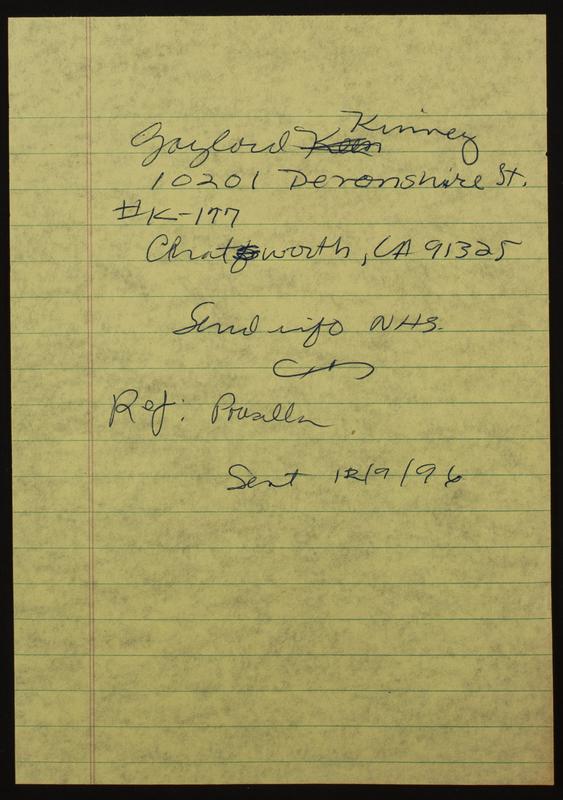 Gaylord Kinney
10201 Devonshire St.
#K-177
Chatsworth, CA 91325
Send info NHS.
Ref: Prisilla
Sent 12/9/96